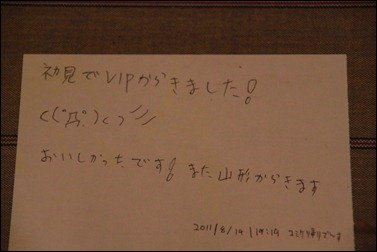 初見でVIPからきました!
⊂(゚Д゚)⊃彡
おいしかったです! また山形からきます
2011/8/14 19:19 コミケ帰りでーす